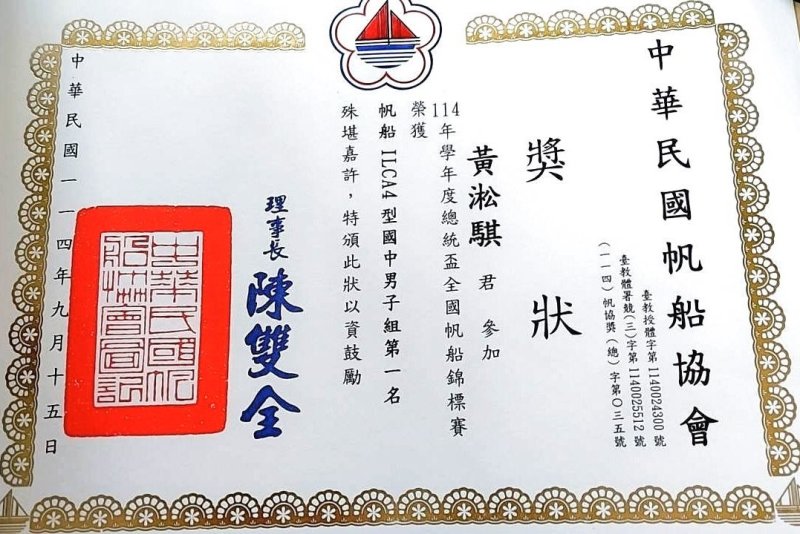 中華民國帆船協會
獎狀
臺教授體字第1140024300號
臺教體署競(三)字第1140025512號
(一一四)帆協獎(總)字第〇三五號
黃淞騏 君 參加
114年學年度總統盃全國帆船錦標賽
榮獲
帆船ILCA4型國中男子組第一名
殊堪嘉許，特頒此狀以資鼓勵
理事長 陳雙全
中華民國帆船協會圖記
中華民國一一四年九月十五日